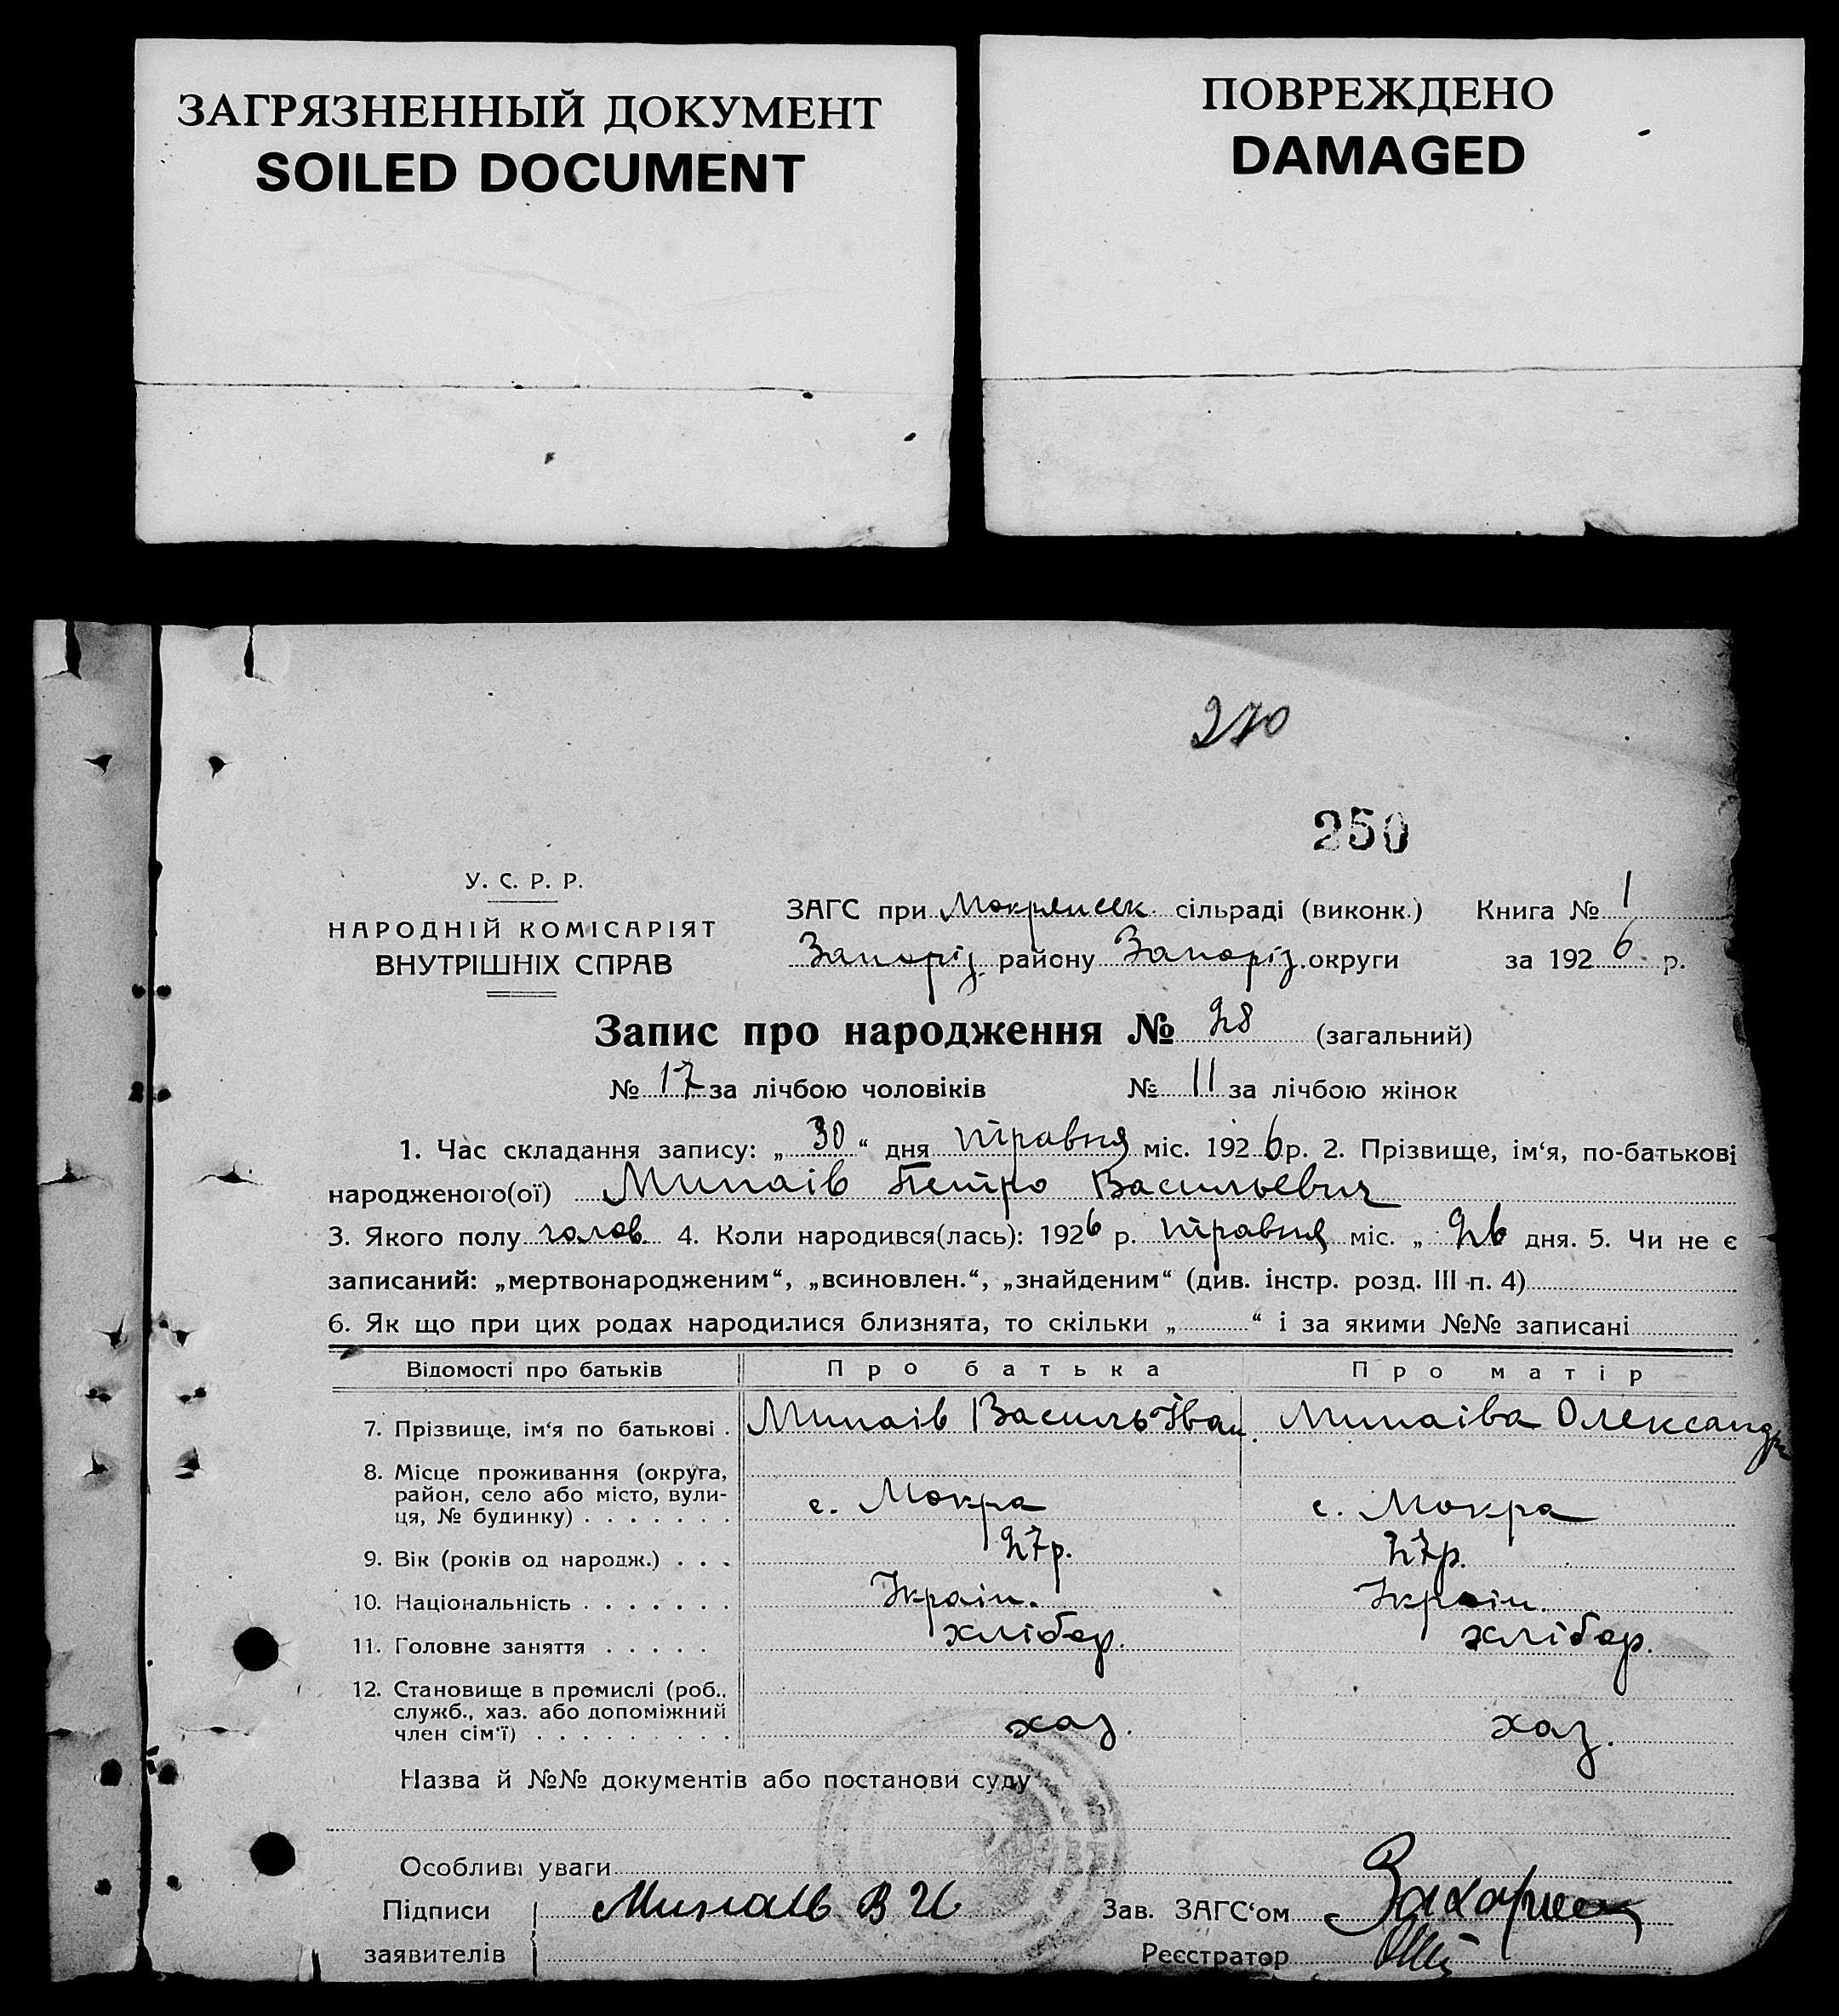 ЗАГРЯЗНЕННЫЙ ДОКУМЕНТ
SOILED DOCUMENT
ПОВРЕЖДЕНО
DAMAGED
250
У. С. Р. Р.
НАРОДНІЙ КОМІСАРІЯТ
ВНУТРІШНІХ СПРАВ
ЗАГС при Мокрянсек. сільраді (виконк.) Книга № 1
Запоріз. району Запоріз. округи за 1926 р.
Запис про народження № 28 (загальний)
№ 17 за лічбою чоловіків № 11 за лічбою жінок
1. Час складання запису: „30“ дня травня міс. 1926 р. 2. Прізвище, ім‘я, по-батькові
народженого(ої) Минаів Петро Васильевич
3. Якого полу чолов. 4. Коли народився(лась): 1926 р. травня міс. „26 дня. 5. Чи не є
записаний: „мертвонародженим“, „всиновлен.“, „знайденим“ (див. інстр. розд. III п. 4)
6. Як що при цих родах народилися близнята, то скільки „ “ і за якими №№ записані
Відомості про батьків Про батька Про матір
7. Прізвище, ім‘я по батькові . Минаів Василь Іван. Минаіва Олександр
8. Місце проживання (округа,
район, село або місто, вули-
ця, № будинку) . . . . . . . с. Мокра с. Мокра
9. Вік (років од народж.) . . . 27р. 27р.
10. Національність . . . . . . . Украін. Украін.
11. Головне заняття . . . . . хлібор. хлібор.
12. Становище в промислі (роб.,
служб., хаз. або допоміжний
член сім‘ї) . . . . . . . . . хаз. хаз.
Назва й №№ документів або постанови суду
Особливі уваги
Підписи Минаів В И Зав. ЗАГС‘ом
заявителів Реєстратор